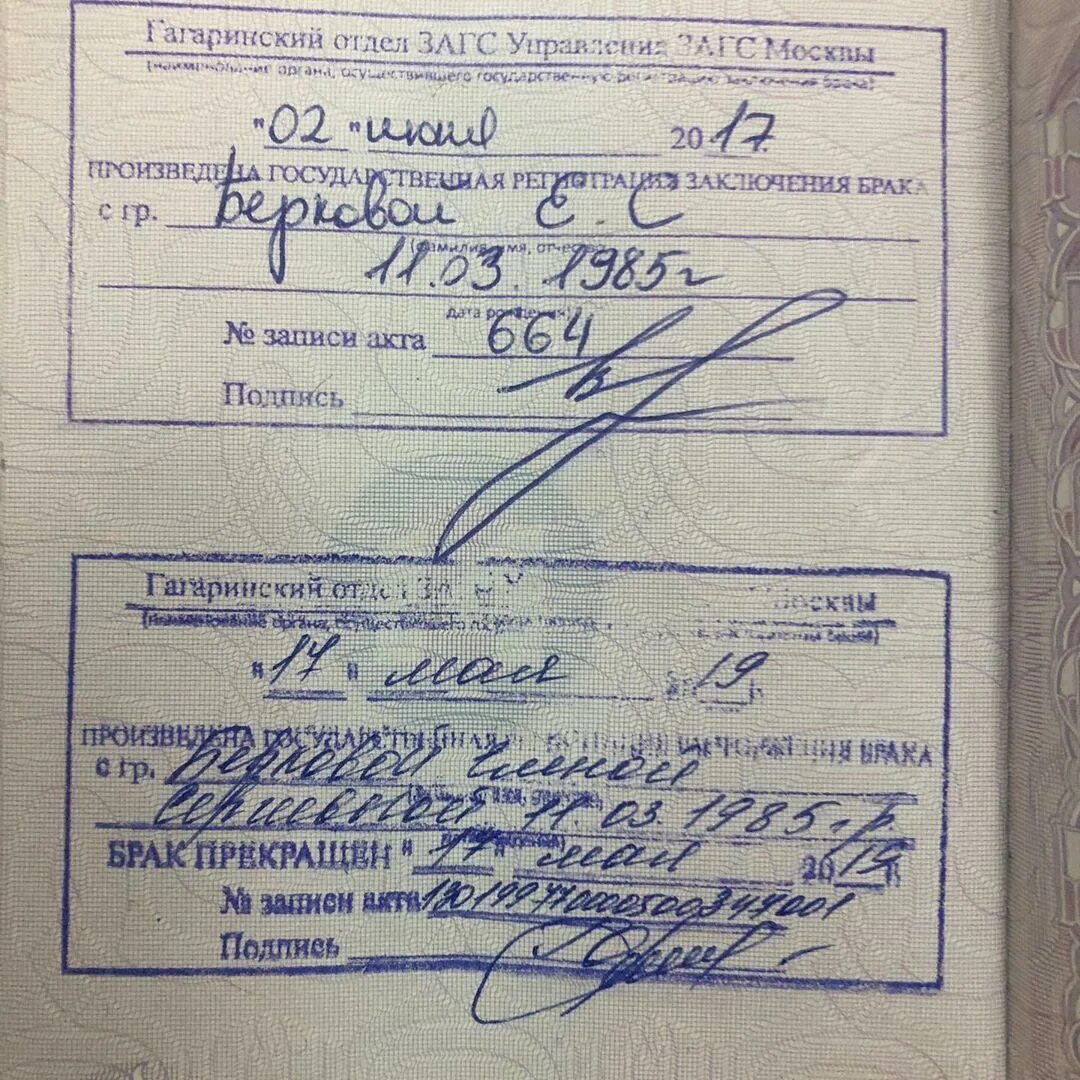 Гагаринский отдел ЗАГС Управления ЗАГС Москвы
(наименование органа, осуществившего государственную регистрацию заключения брака)
"02" июня 2017.
ПРОИЗВЕДЕНА ГОСУДАРСТВЕННАЯ РЕГИСТРАЦИЯ ЗАКЛЮЧЕНИЯ БРАКА
с гр. Берковой Е. С
(фамилия, имя, отчество)
11.03.1985г
дата рождения)
№ записи акта 664
Подпись
Гагаринский отдел ЗАГС Москвы
(наименование органа, осуществившего
"17" мая 19 г.
ПРОИЗВЕДЕНА ГОСУДАРСТВЕННАЯ РАСТОРЖЕНИЯ БРАКА
с гр. Берковой Еленой
Сергеевной 11.03.1985г.р.
БРАК ПРЕКРАЩЕН "17" мая 2019 г.
№ записи акта
Подпись